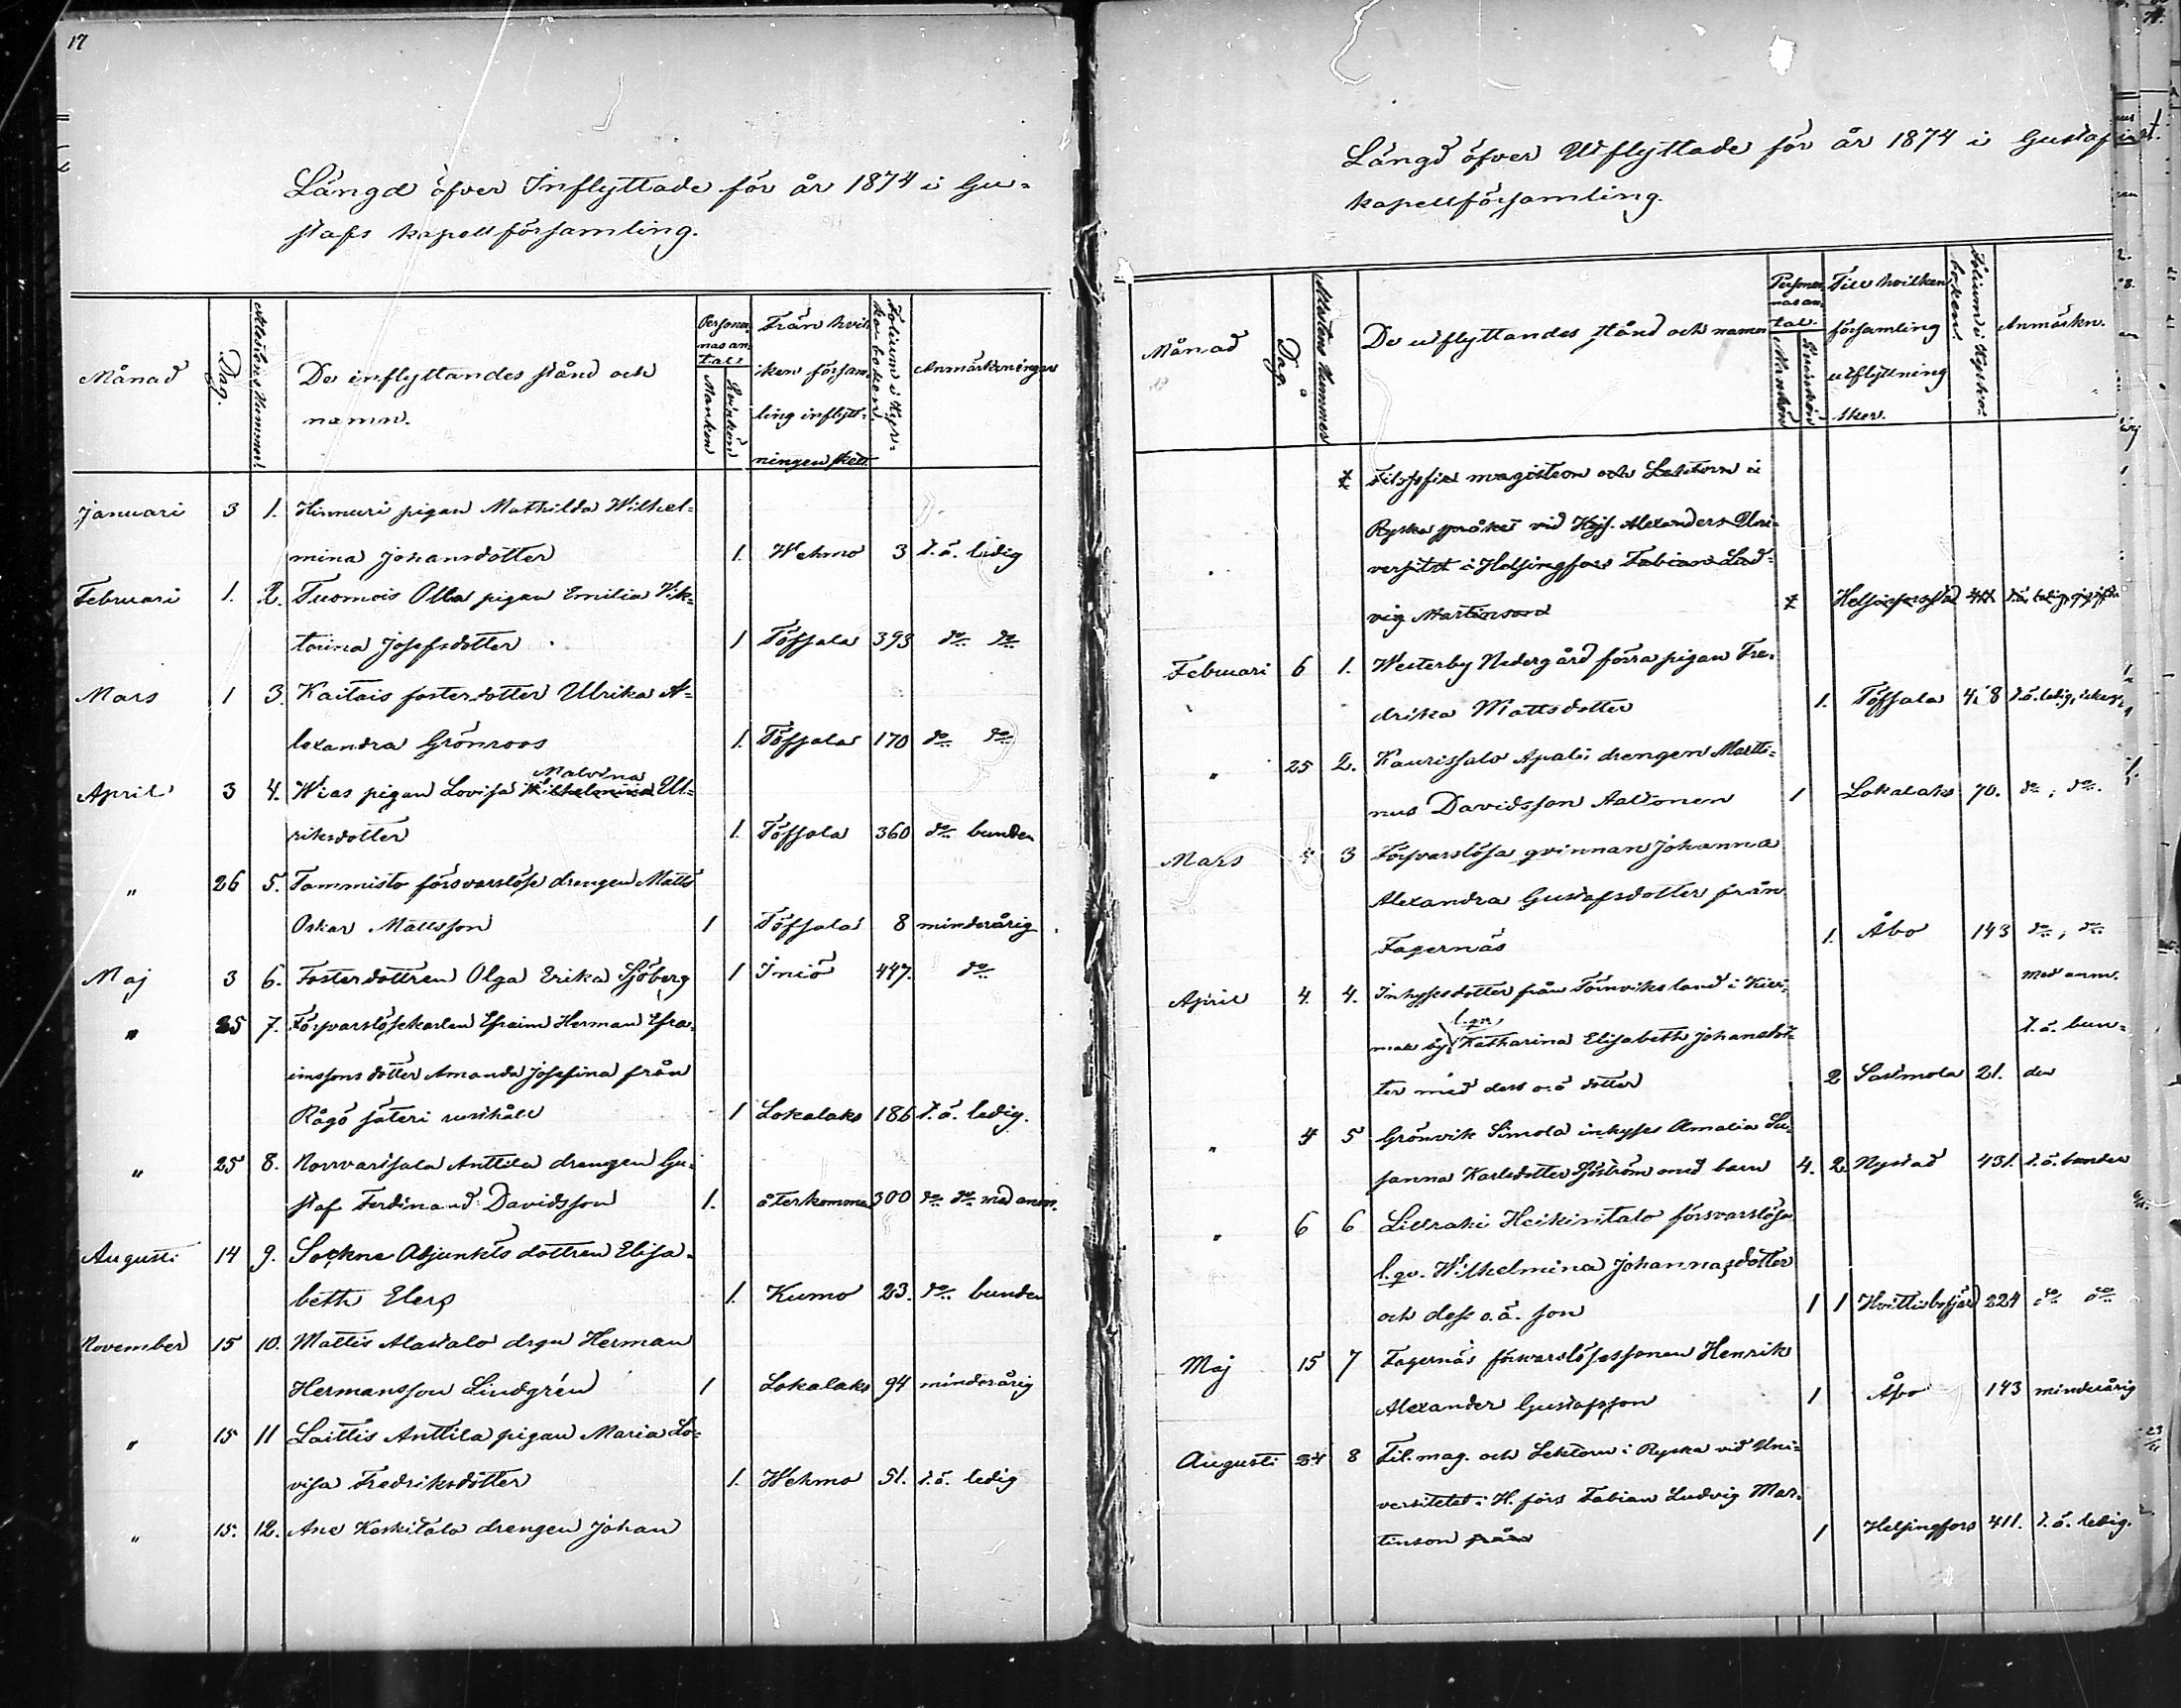 17
Längd öfver Inflyttade för år 1874 i Gu-
stafs kapellförsamling.
Månad
Dag.
Attestens Nummer.
De inflyttandes stånd och
namn.
Personer-
nas an-
tal
Mankön
Qvinkön
Från hvil-
ken försam-
ling inflytt-
ningen skett.
Folium i Kyr-
koboken.
Anmärkningar
Januari 3 1. Hinnuri pigan Mathilda Wilhel-
mina Johansdotter 1. Wehmo 3 t.ä. ledig
Februari 1. 2. Tuomois Olla pigan Emilia Vik-
torina Josefsdotter 1 Töfsala 393 do do
Mars 1 3. Kaitais fosterdotter Ulrika A-
lexandra Grönroos 1. Töfsala 170 do do
Malvina
April 3 4. Wias pigan Lovisa Wilhelmina Ul-
riksdotter 1. Töfsala 360 do bunden
" 26 5. Tammisto försvarslöse drengen Matts
Oskar Mattsson 1 Töfsala 8 minderårig
Maj 3 6. Fosterdottren Olga Erika Sjöberg 1 Iniö 447. do
" 25 7. Försvarslöse karlen Efraim Herman Efra-
imssons dotter Amanda Josefina från
Rågö säteri rusthåll 1 Lokalaks 186 t.ä. ledig.
" 25 8. Norrvarsala Anttila drengen Gu-
staf Ferdinand Davidsson 1. återkommen 300 do do med anm.
Augusti 14 9. Sockne Adjunkts dottren Elisa-
beth Elers 1. Kumo 23. do bunden
November 15 10. Mattis Alastalo drgn Herman
Hermansson Lindgrén 1 Lokalaks 94 minderårig
" 15 11 Laittis Anttila pigan Maria Lo-
visa Fredriksdotter 1. Wehmo 51. t.ä. ledig
" 15. 12. Ane Koskitalo drengen Johan
Längd öfver Utflyttade för år 1874 i Gustafs
kapellförsamling.
Månad
Dag.
Attestens Nummer
De utflyttandes stånd och namn
Personer-
nas an-
tal.
Mankön
Qvinkön
Till hvilken
församling
utflyttning
sker.
Folium i Kyrko-
boken.
Anmärkn.
Filosofie magistern och Lektorn i
Ryska språket vid Kejs. Alexanders Uni-
versitet i Helsingfors Fabian Lud-
vig Martinson Helsingfors
Februari 6 1. Westerby Nedergård förra pigan Fre-
drika Mattsdotter 1. Töfsala t.ä. ledig
" 25 2. Kaurissalo Apali drengen Marti-
nus Davidsson Aaltonen 1 Lokalaks 70. do, do.
Mars 3 Försvarslösa qvinnan Johanna
Alexandra Gustafsdotter från
Fagernäs 1. Åbo 143 do, do
med anm.
April 4. 4. Inhysesdotter från Törnviks land i Kivi-
l.qv.
mais by Katharina Elisabeth Johansdot- t.ä. bun-
ter med dess o.ä dotter 2 Sastmola 21. den
" 4 5 Grönvik Simola inhyses Amalia Su-
sanna Karlsdotter Sjöström med barn 4. 2 Nystad 431. t.ä. bunden
" 6 6 Heikintalo försvarslösa
l.qv. Wilhelmina Johannasdotter
och dess o.ä. son 1 1 Hvittisbofjärd 224 do do
Maj 15 7 Fagernäs försvarslösessonen Henrik
Alexander Gustafsson 1 Åbo 143 minderårig
Augusti 24 8 Fil. mag. och Lektorn i Ryska vid Uni-
versitetet i H.fors Fabian Ludvig Mar-
tinson från 1 Helsingfors 411. t.ä. ledig.